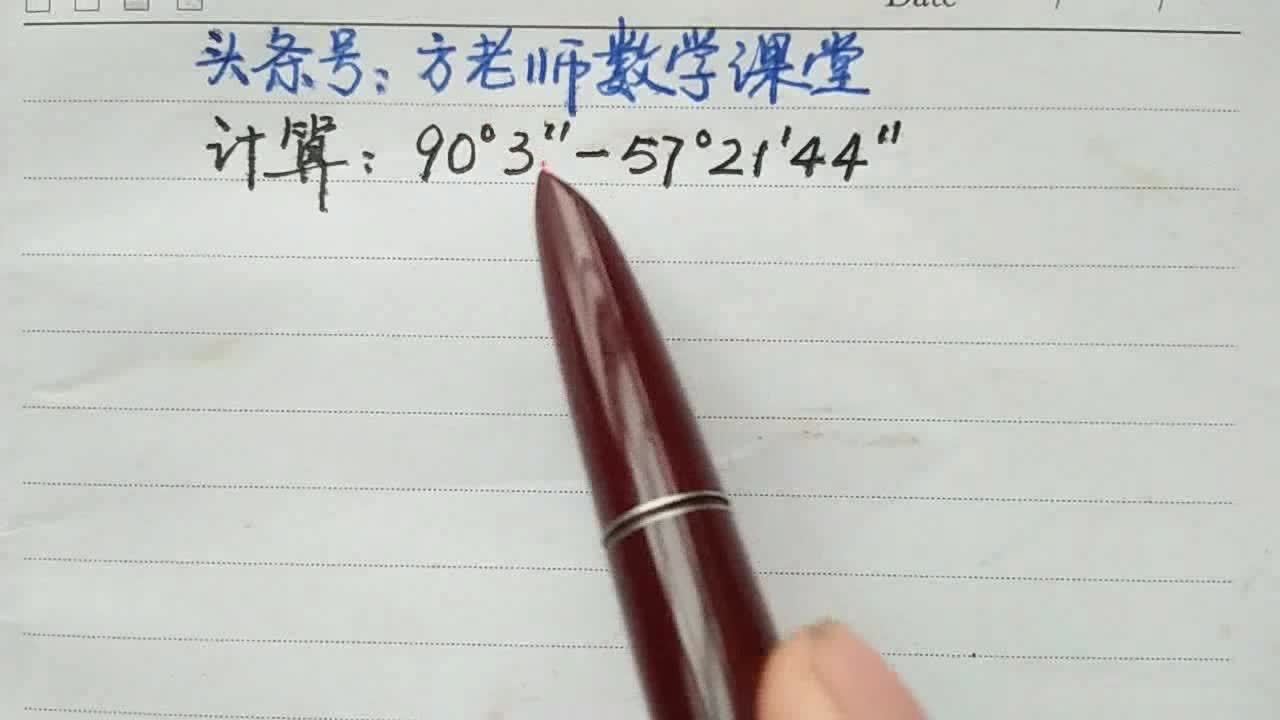 Date / /
头条号：方老师数学课堂
计算：90°3″-57°21′44″